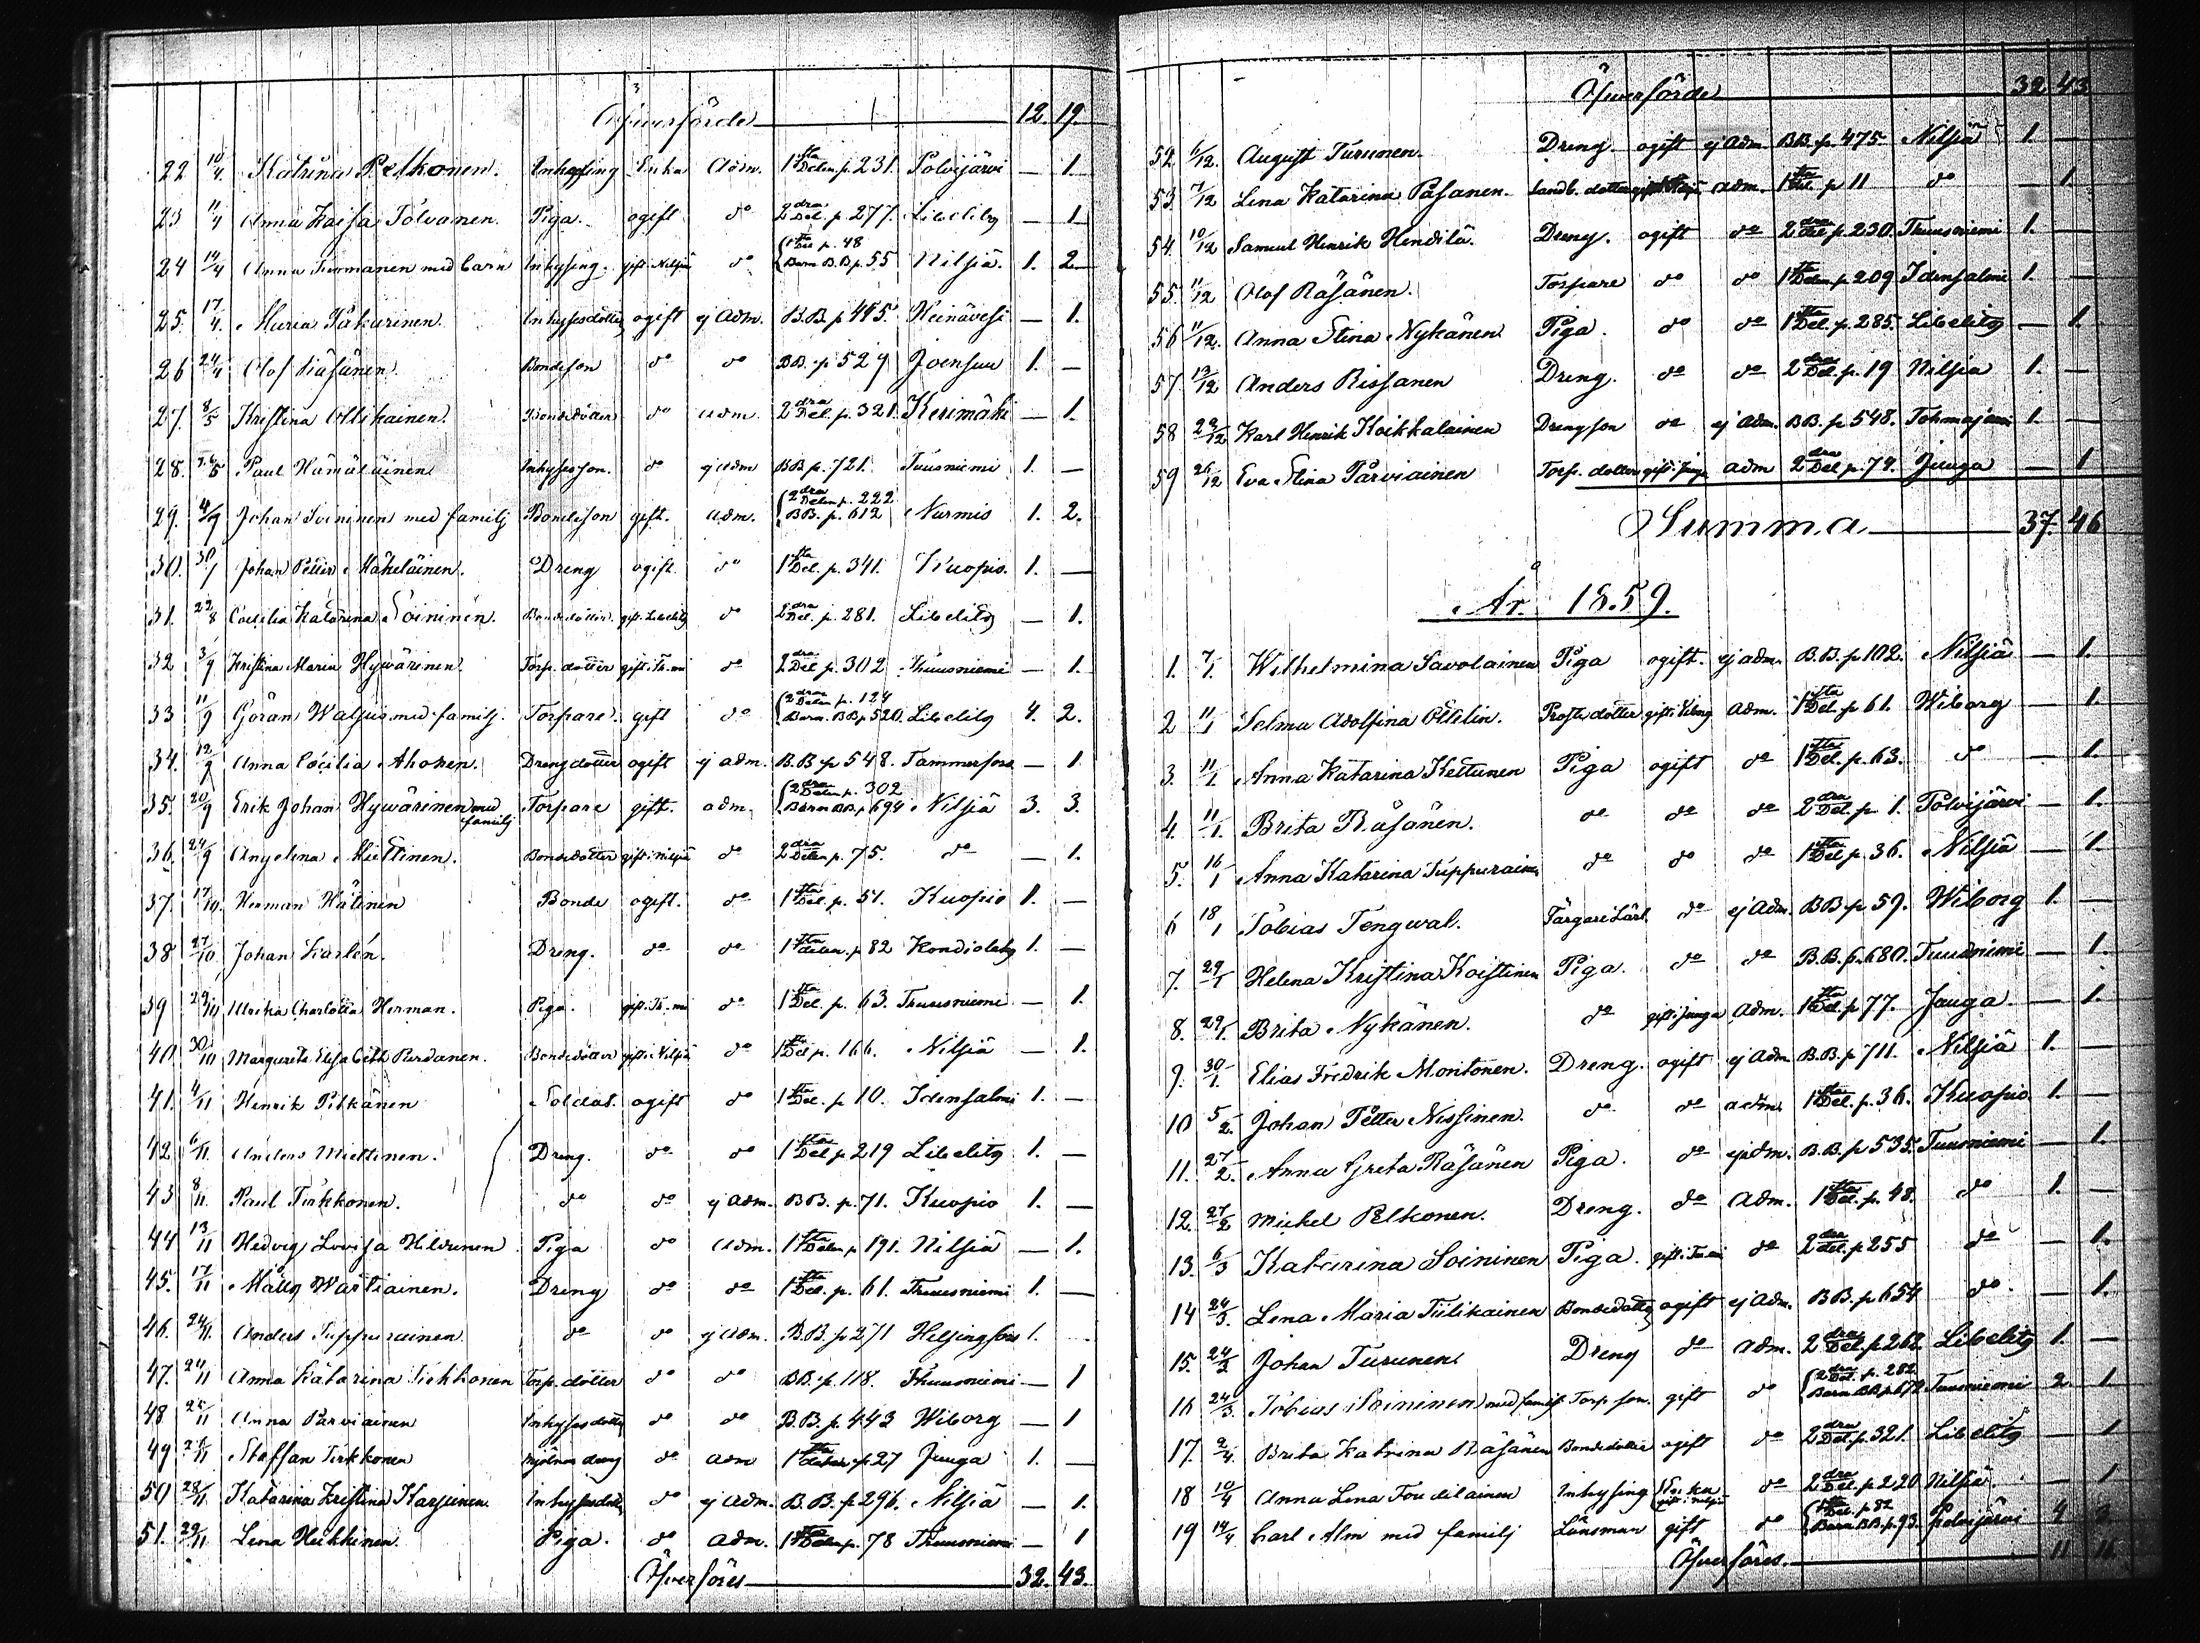 Öfverförde 12. 19.
22 10/4. Katrina Pelkonen. Inhysing Enka Adm. 1sta Delen p. 231. Polvijärvi — 1.
23 11/4 Anna Kaisa Tolvanen. Piga. ogift do 2dra Del. p. 277. Libelitz — 1.
24 14/4 Anna Turmanen med barn Inhysing. gift. Nilsiä do 1sta Del p. 48 Barn B.B.p. 55 Nilsiä. 1. 2.
25. 17/4. Maria Kakurinen. Inhysesdotter ogift ej Adm. B.B. p 445. Heinävesi — 1.
26 24/4 Olof Räsänen. Bondeson do do BB. p 529 Joensuu 1. —
27. 8/5 Kristina Ollikainen. Bondedotter do adm. 2dra Del. p. 321. Kerimäki — 1.
28. /5 Paul Hämäläinen Inhysesson. do ej adm BB p. 721. Tuusniemi 1. —
29. 4/9 Johan Soininen med familj Bondeson gift. adm. 2dra Delen p. 222 BB. p. 612 Nurmis 1. 2.
30. Johan Petter Mähöläinen. Dreng ogift. do 1sta Del. p. 341. Kuopio. 1. —
31. 22/8 Caecilia Katarina Soininen. Bondedotter. gift. Libelitz do 2dra Del. p. 281. Libelitz — 1.
32 3/9 Kristina Maria Hyvärinen. Torp. dotter gift. Th.mi do 2dra Del p. 302 Thuusniemi — 1.
33 11/9 Göran Walsius med familj. Torpare. gift do 2dra Delen p. 124 Barn. BB p 520. Libelitz 4. 2.
34. 12/9 Anna Cecilia Ahonen. Drengdotter ogift ej adm. B.B p 548. Tammerfors — 1.
35. 20/9 Erik Johan Hyvärinen med familj Torpare gift. adm. 2dra Delen p. 302 Barn BB p 694 Nilsiä 3. 3.
36. 24/9 Angelina Miettinen. Bondedotter gift. Nilsiä do 2dra Delen p. 75. do — 1.
37. 17/10. Herman Hätinen Bonde ogift. do 1sta Del. p. 51. Kuopio 1. —
38 27/10. Johan Karlén. Dreng. do do 1sta delen. p 82 Kondiolaks 1. —
39 29/10 Ulrika Charlotta Herman. Piga. gift. Th.mi do 1sta Del. p. 63. Thuusniemi — 1.
40 30/10 Margareta Elisabeth Purdanen. Bondedotter gift. i Nilsiä do 1sta Del p. 166. Nilsiä — 1.
41. 4/11 Henrik Pitkänen Soldat. ogift do 1sta Del. p 10. Idensalmi 1. —
42. 6/11. Anders Miettinen. Dreng. do do 1sta Del p 219 Libelitz 1. —
43 8/11 Paul Tirkkonen. do do ej adm. BB. p. 71. Kuopio 1. —
44 13/11 Hedvig Lovisa Hildunen Piga do adm. 1sta Delen p 191. Nilsiä — 1.
45. 17/11 Mats Wartiainen. Dreng do do 1sta Del. p. 61. Thuusniemi 1. —
46. 24/11. Anders Tuppurainen. do do ej adm. B.B. p 271 Helsingfors 1.
47. 24/11 Anna Katarina Tirkkonen Torp. dotter do do BB. p. 118. Thuusniemi — 1
48 25/11 Anna Parviainen Inhysesdotter do do B.B. p. 443 Wiborg — 1
49 /11 Staffan Tirkkonen Mjölnare dreng do adm 1sta delen p 27 Juuga 1. —
50 28/11 Katarina Kristina Karjainen Inhysesdotter do ej adm. B.B. p 296. Nilsiä — 1.
51. 29/11 Lena Heikkinen. Piga. do adm. 1sta Delen p. 78 Thuusniemi — 1
Öfverföres 32. 43.
Öfverförde 32. 43
52 6/12. August Turunen. Dreng. ogift ej adm BB. p. 475. Nilsiä 1. —
53 7/12 Lena Katarina Pasanen. Landb. dotter adm. 1sta Del. p 11 do — 1.
54 10/12 Samuel Henrik Hendilä. Dreng. ogift do 2dra Del p. 230. Thuusniemi 1. —
55. 11/12 Olof Räsänen. Torpare do do 1sta Delen p 209 Idensalmi 1. —
56 11/12. Anna Stina Nykänen Piga. do do 1sta Del. p. 285. Libelitz — 1.
57 13/12 Anders Rissanen Dreng. do do 2dra Del. p. 19 Nilsiä 1. —
58 22/12 Karl Henrik Koikkalainen Drengson do ej adm. BB. p 548. Tohmajärvi 1. —
59 26/12 Eva Stina Parviainen Torp. dotter gift. Juuga adm 2dra Del p. 79. Juuga — 1
Summa 37. 46
År 1859.
1. 7/1. Wilhelmina Savolainen Piga ogift. ej adm. B.B. p 102. Nilsiä — 1.
2 11/1 Selma Adolfina Öttelin. Prostedotter gift. Wiborg adm. 1sta Del. p 61. Wiborg — 1.
3. 11/1 Anna Katarina Kettunen Piga ogift do 1sta Del. p. 63. do — 1.
4. 11/1. Brita Räsänen. do do do 2dra Del. p 1. Polvijärvi — 1.
5. 16/1 Anna Katarina Tuppurainen do do do 1sta Del p. 36. Nilsiä — 1.
6 18/1 Tobias Tengwal. Färgare Lärl. do ej adm. BB p 59. Wiborg 1. —
7. 29/1 Helena Kristina Koistinen Piga. do do B.B. p. 680. Tuusniemi — 1.
8. 29/1. Brita Nykänen. do gift. Juuga adm. 1sta Del p 77. Juuga. — 1.
9. 30/1. Elias Fredrik Montonen. Dreng. ogift ej adm B.B. p 711. Nilsiä 1. —
10 5/2. Johan Petter Nissinen. do do adm 1sta Del. p. 36. Kuopio 1. —
11. 27/2. Anna Greta Räsänen Piga. do ej adm. B.B. p 535. Tuusniemi — 1.
12. 27/2 Michel Pelkonen. Dreng. do adm. 1sta Del. p. 48. do 1. —
13. 6/3 Katarina Soininen Piga. gift. do 2dra del. p 255 do — 1.
14 24/3. Lena Maria Tiilikainen Bondedotter ogift ej adm. BB. p 654 do. — 1.
15. 24/3 Johan Turunen Dreng do adm. 2dra Del p 262 Libelitz 1. —
16 24/3. Tobias Soininen med familj Torp. son. gift do 2dra Del. p. 282 Barn BB p 672 Tuusniemi 2. 1
17. 2/4. Brita Katrina Räsänen Bondedotter ogift do 2dra Del. p. 321. Libelitz — 1
18 10/4 Anna Lena Toudilainen Inhysing Enka gift. i Nilsiä do 2dra Del. p 220 Nilsiä. — 1
19 14/4 Carl Alm med familj Länsman gift do 1sta Del. p 82 Barn BB. p. 93. Polvijärvi 4
Öfverföres. 11 11